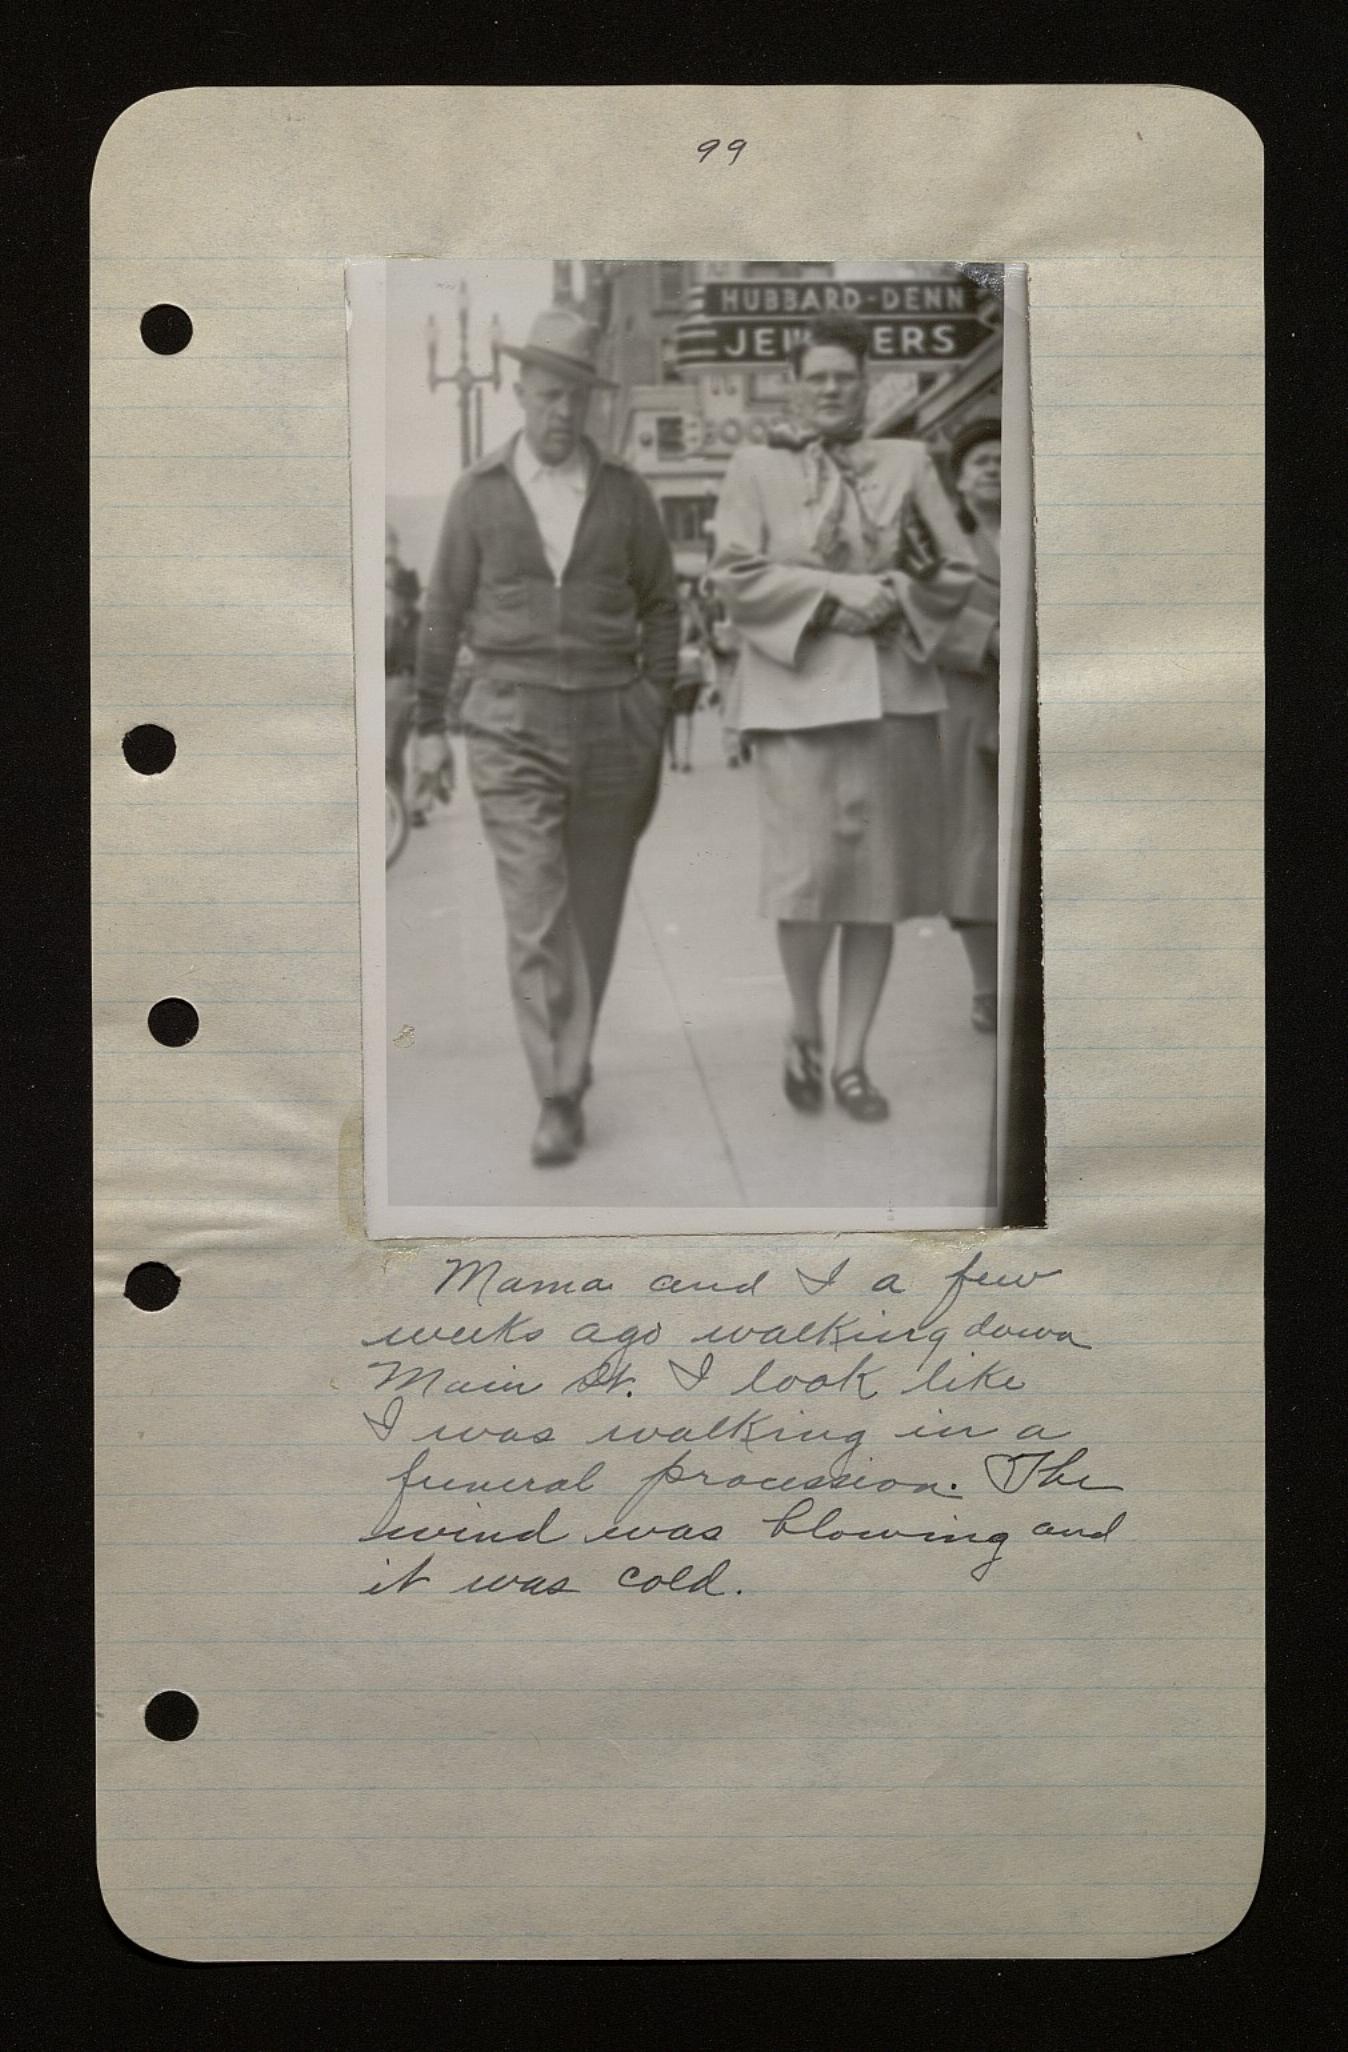 99
HUBBARD-DENN
JEW ERS
Mama and I a few
weeks ago walking down
Main St. I look like
I was walking in a
funeral procession. The
wind was blowing and
it was cold.